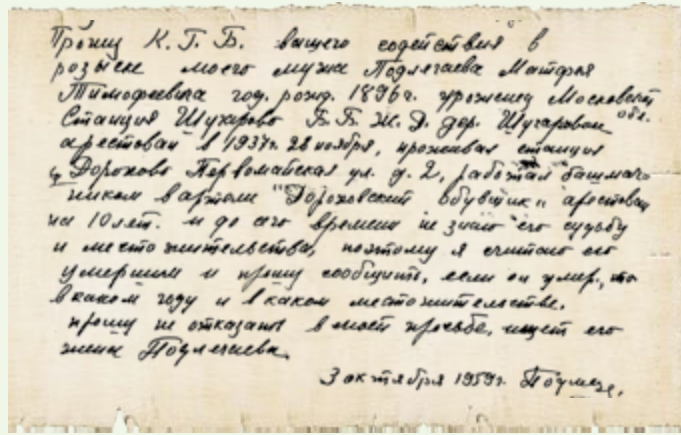 Прошу К. Г. Б. вашего содействия в
розыске моего мужа Подлегаева Матфея
Тимофеевича год. рожд. 1896г. уроженец Московской обл.
Станция Шухарово Б. Б. Ж. Д. дер. Шугарован
арестован в 1937г. 28 ноября, проживал станция
Дорохово Первомайская ул. д. 2, работал башмач
ником в артели "Дороховский обувщик" арестован
на 10 лет. и до сего времени не знаю его судьбу
и местожительства, поэтому я считаю его
умершим и прошу сообщить, если он умер, то
в каком году и в каком местожительстве.
прошу не отказать в моей просьбе, ищет его
жена Подлегаева
3 октября 1959г.